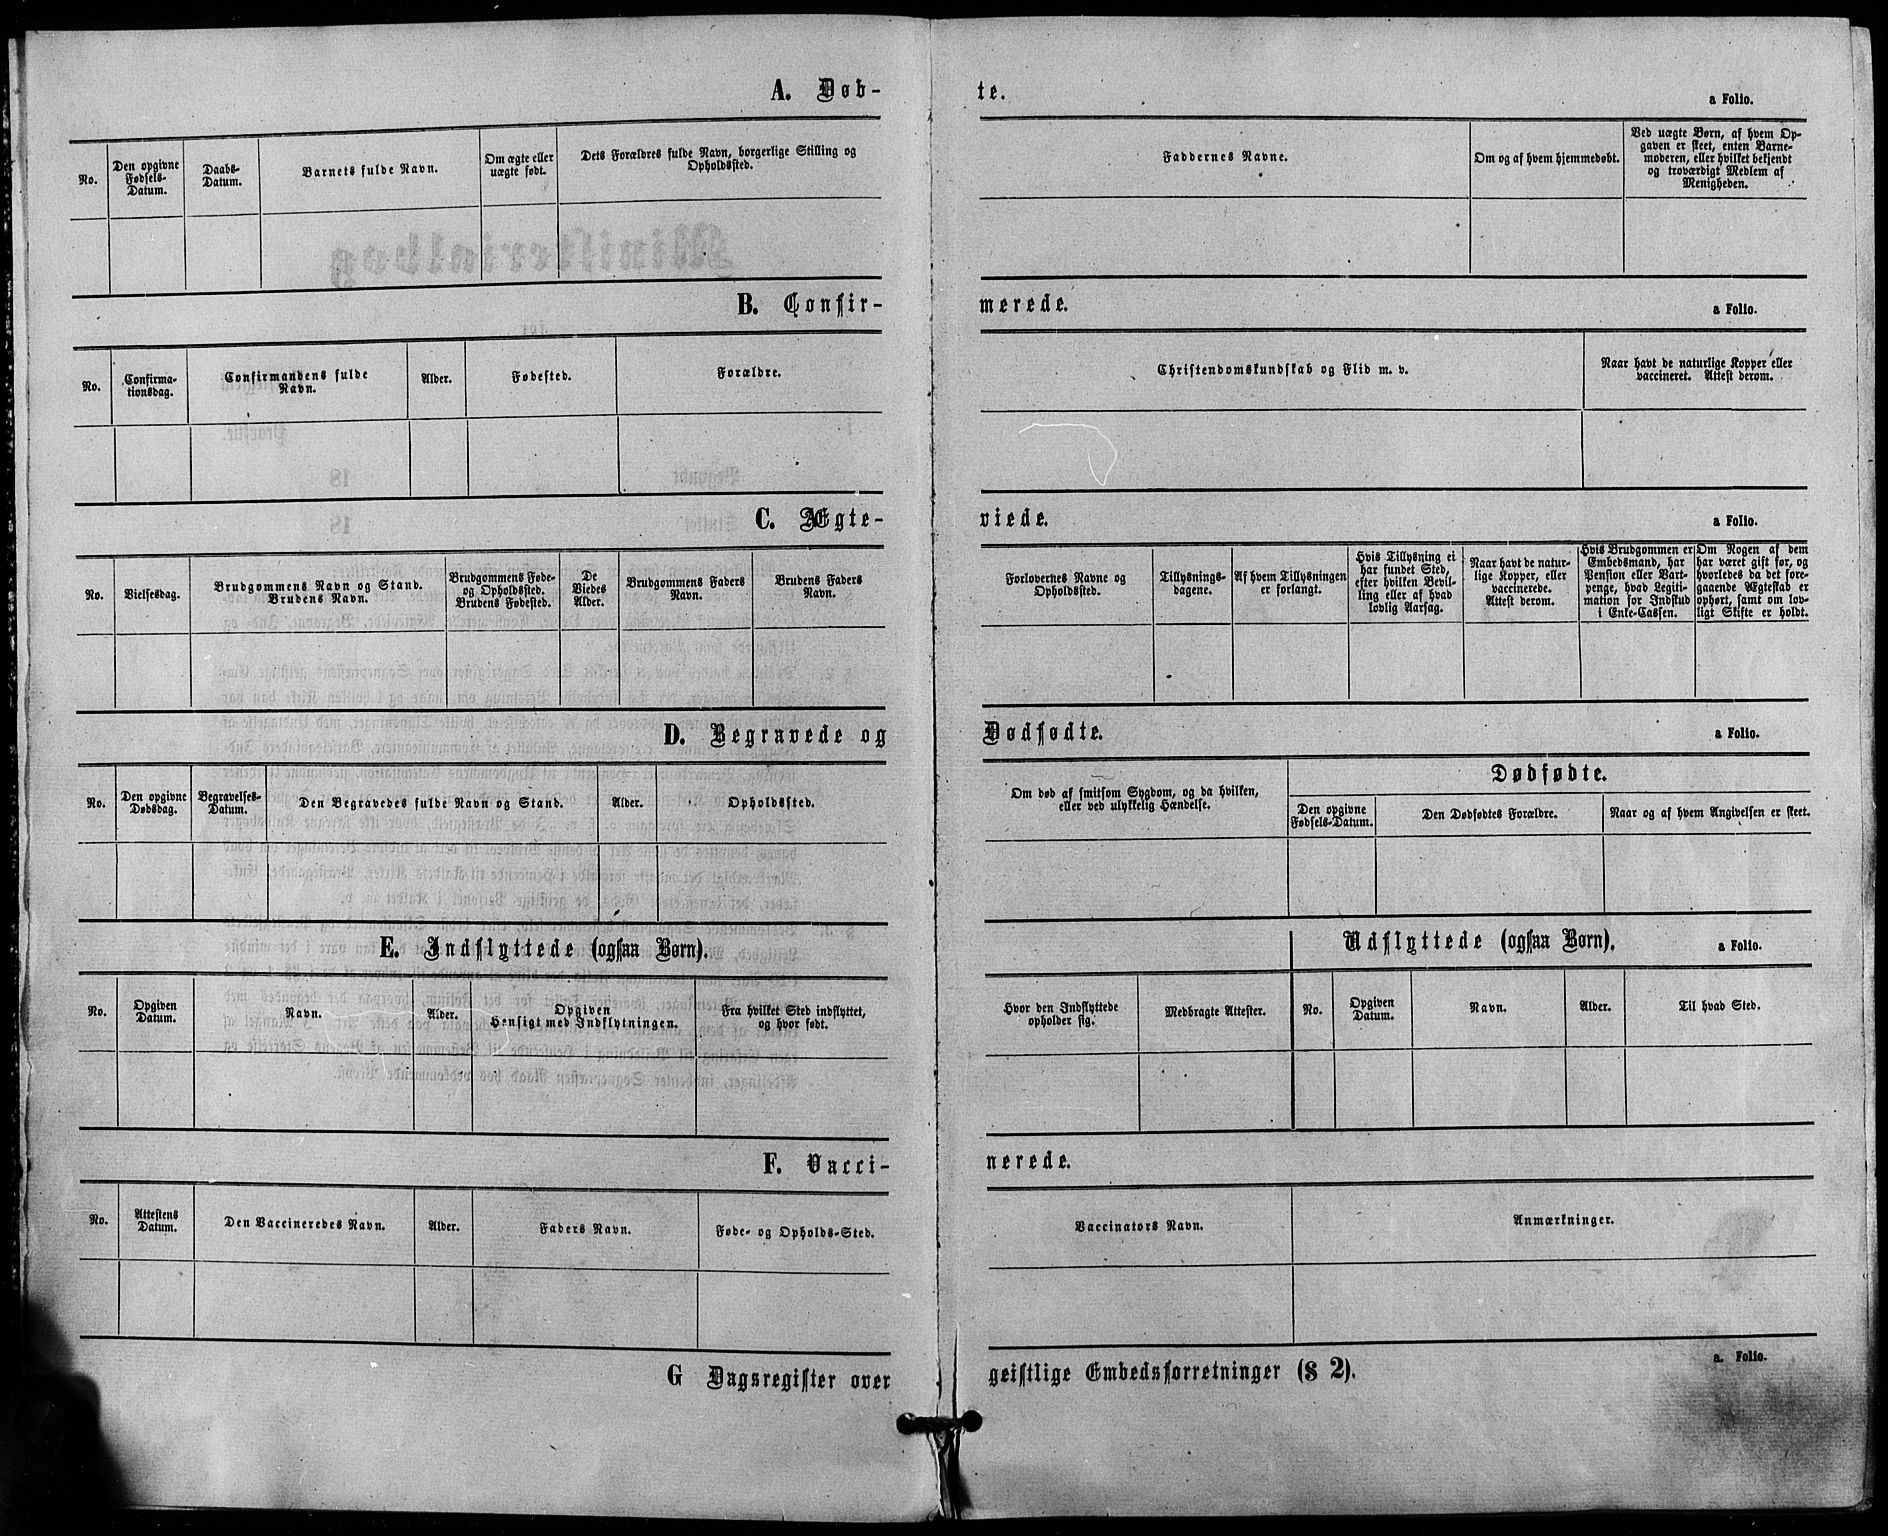 A. Døb-te.
a Folio.
No.
Den opgivne
Fødsels-
Datum.
Daabs-
Datum.
Barnets fulde Navn.
Om ægte eller
uægte født.
Dets Forældres fulde Navn, borgerlige Stilling og
Opholdssted.
Faddernes Navne.
Om og af hvem hjemmedøbt.
Ved uægte Børn, af hvem Op-
gaven er skeet, enten Barne-
moderen, eller hvilket bekjendt
og troværdigt Medlem af
Menigheden.
B. Confir-merede.
a Folio.
No.
Confirma-
tionsdag.
Confirmandens fulde
Navn.
Alder.
Fødested.
Forældre.
Christendomskundskab og Flid m. v.
Naar havt de naturlige Kopper eller
vaccineret. Attest derom.
C. Ægte-viede.
a Folio.
No.
Vielsesdag.
Brudgommens Navn og Stand.
Brudens Navn.
Brudgommens Føde-
og Opholdssted.
Brudens Fødested.
De
Viedes
Alder.
Brudgommens Faders
Navn.
Brudens Faders
Navn.
Forlovernes Navne og
Opholdssted.
Tillysnings-
dagene.
Af hvem Tillysningen
er forlangt.
Hvis Tillysning ei
har fundet Sted,
efter hvilken Bevil-
ling eller af hvad
lovlig Aarsag.
Naar havt de natur-
lige Kopper, eller
vaccinerede.
Attest derom.
Hvis Brudgommen er
Embedsmand, har
Pension eller Vart-
penge, hvad Legiti-
mation for Indskud
i Enke-Cassen.
Om Nogen af dem
har været gift før, og
hvorledes da det fore-
gaaende Ægteskab er
ophørt, samt om lov-
ligt Skifte er holdt.
D. Begravede og Dødfødte.
a Folio.
No.
Den opgivne
Dødsdag.
Begravelses-
Datum.
Den Begravedes fulde Navn og Stand.
Alder.
Opholdssted.
Om død af smitsom Sygdom, og da hvilken,
eller ved ulykkelig Hændelse.
Dødfødte.
Den opgivne
Fødsels-Datum.
Den Dødfødtes Forældre.
Naar og af hvem Angivelsen er skeet.
E. Indflyttede (ogsaa Børn).
Udflyttede (ogsaa Børn).
a Folio.
No.
Opgiven
Datum.
Navn.
Alder.
Opgiven
Hensigt med Indflytningen.
Fra hvilket Sted indflyttet,
og hvor født.
Hvor den Indflyttede
opholder sig.
Medbragte Attester.
No.
Opgiven
Datum.
Navn.
Alder.
Til hvad Sted.
F. Vacci-nerede.
No.
Attestens
Datum.
Den Vaccineredes Navn.
Alder.
Faders Navn.
Føde- og Opholds-Sted.
Vaccinators Navn.
Anmærkninger.
G Dagsregister over geistlige Embedsforretninger (§ 2).
a. Folio.